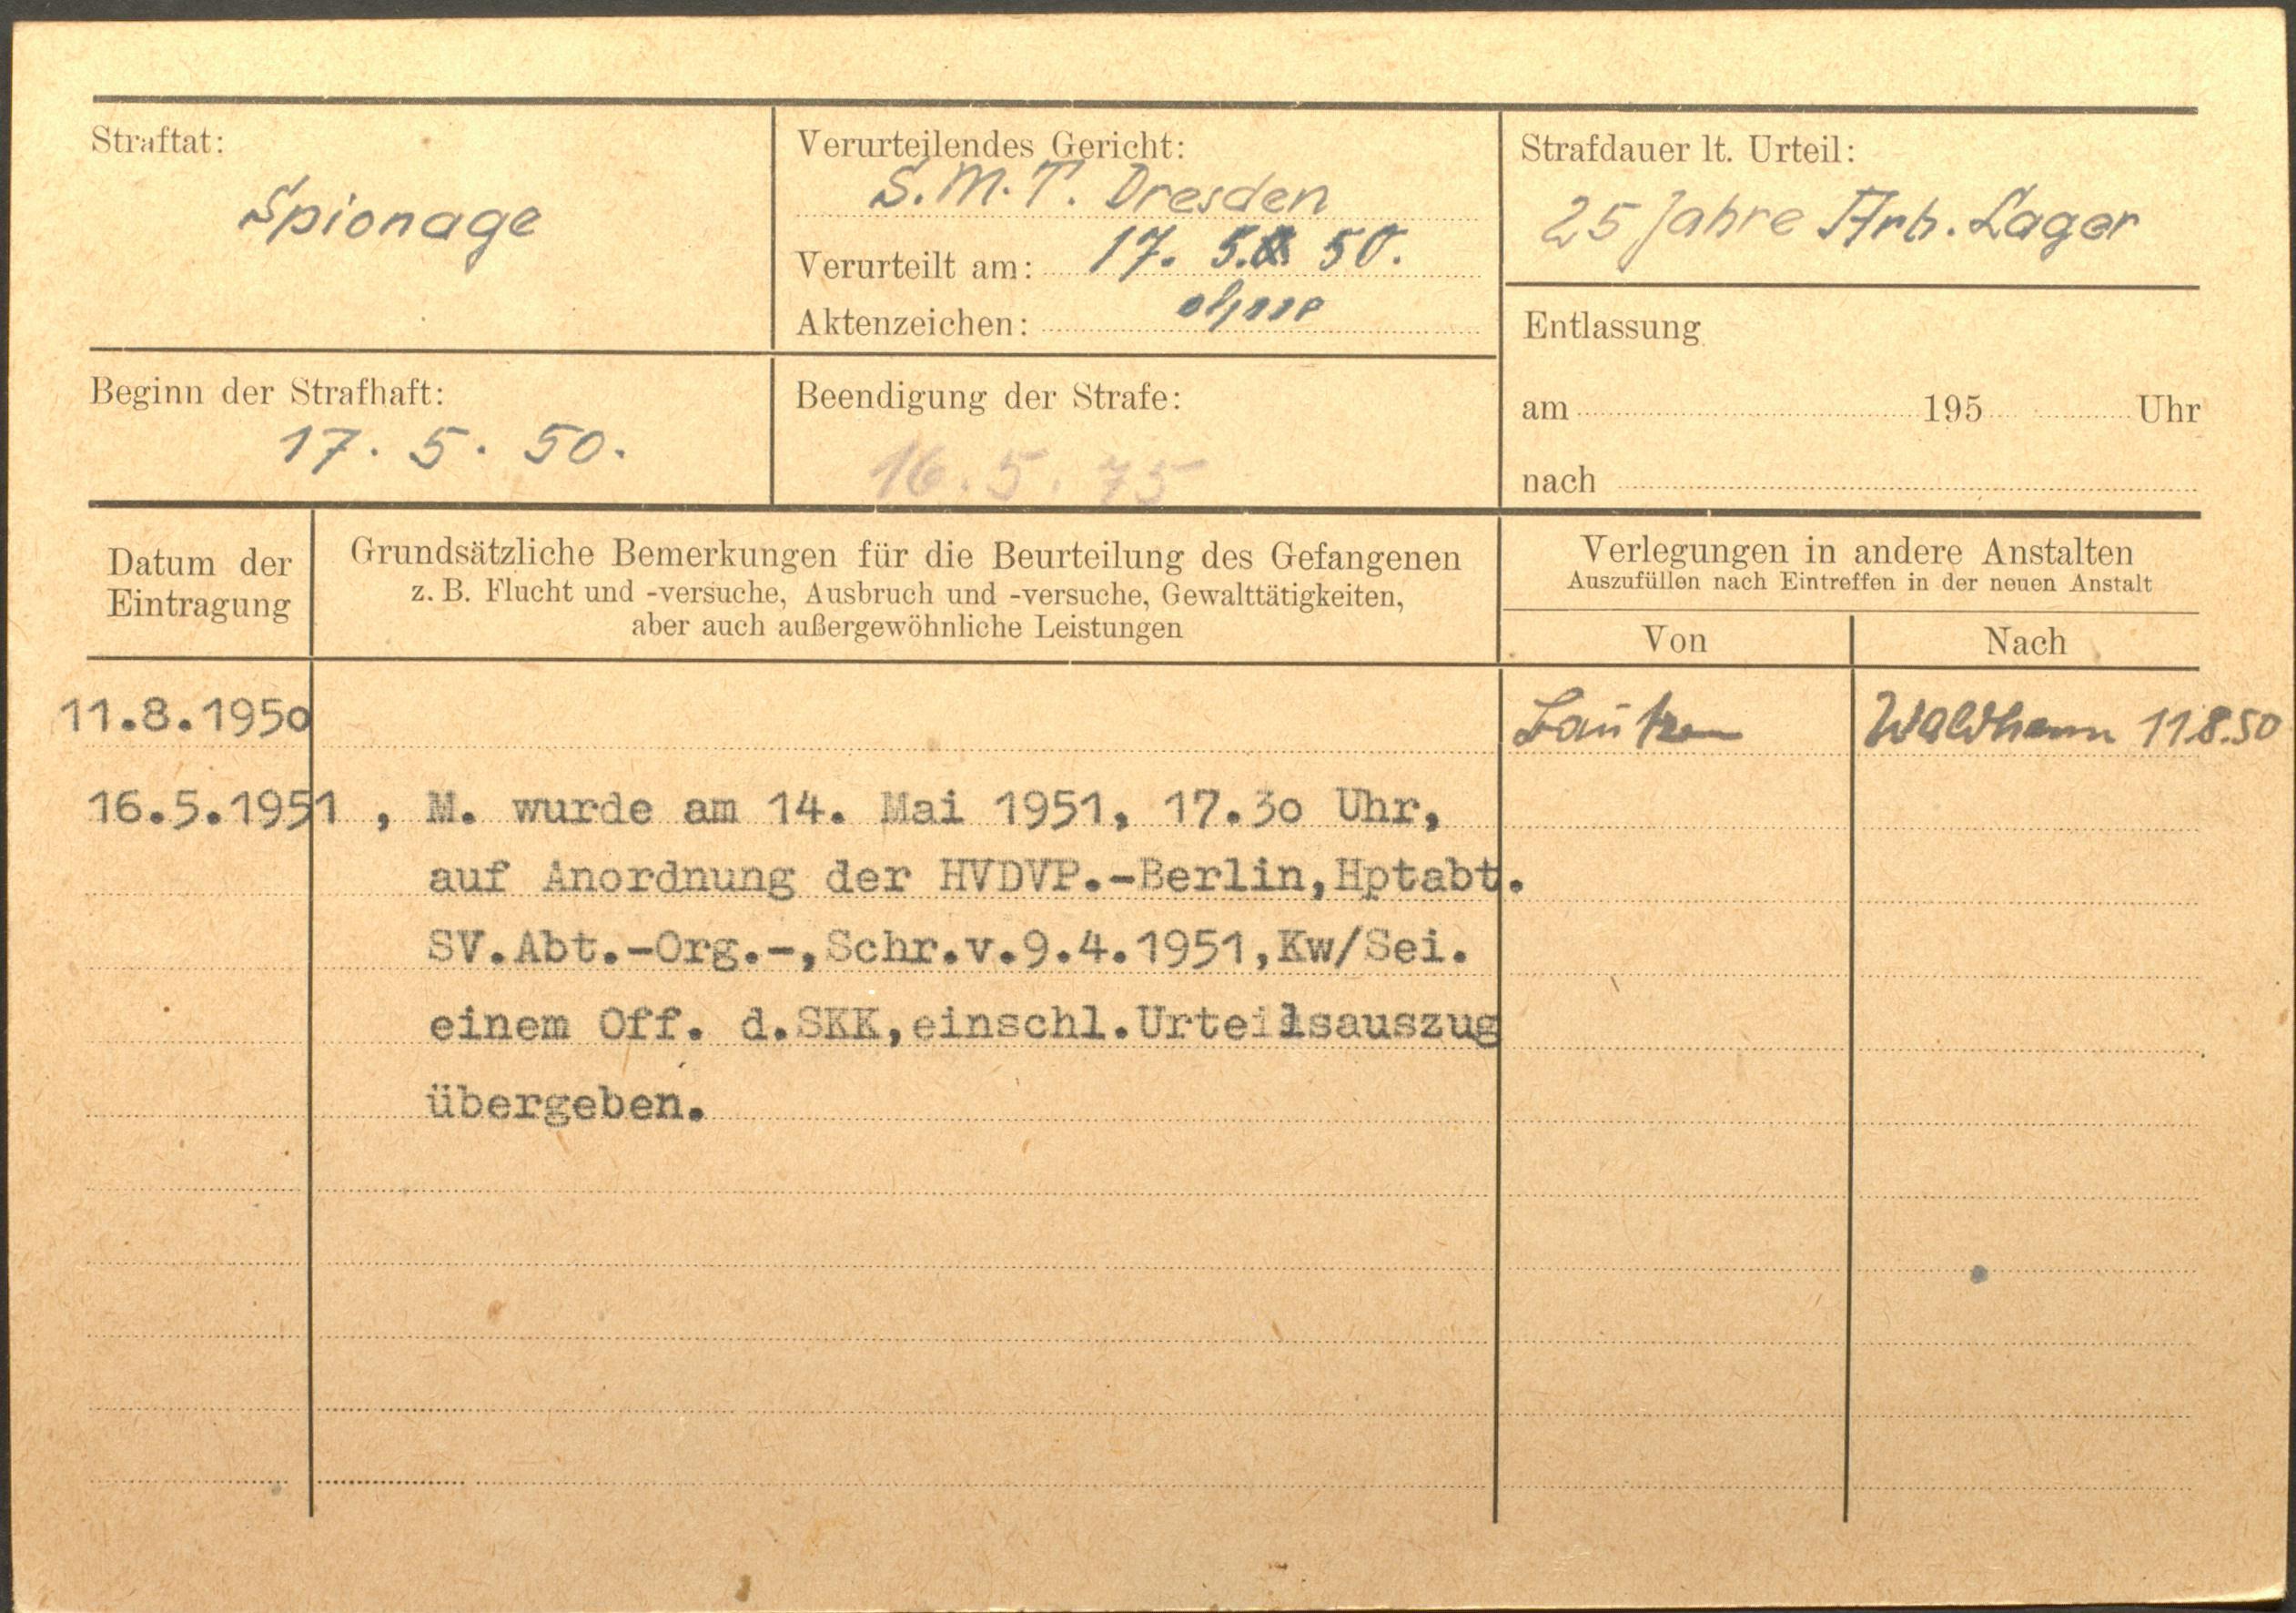 Straftat:
Spionage
Verurteilendes Gericht:
S.M.T. Dresden
Verurteilt am: 17. 5. 50.
Aktenzeichen: ohne
Strafdauer lt. Urteil:
25 Jahre Arb. Lager
Entlassung
am 195 Uhr
nach
Beginn der Strafhaft:
17. 5. 50.
Beendigung der Strafe:
16. 5. 75
Datum der
Eintragung
Grundsätzliche Bemerkungen für die Beurteilung des Gefangenen
z. B. Flucht und -versuche, Ausbruch und -versuche, Gewalttätigkeiten,
aber auch außergewöhnliche Leistungen
Verlegungen in andere Anstalten
Auszufüllen nach Eintreffen in der neuen Anstalt
Von Nach
11.8.1950 Bautzen Waldheim 11.8.50
16.5.1951 , M. wurde am 14. Mai 1951, 17.30 Uhr,
auf Anordnung der HVDVP.-Berlin,Hptabt.
SV.Abt.-Org.-,Schr.v.9.4.1951,Kw/Sei.
einem Off. d.SKK,einschl.Urteilsauszug
übergeben.